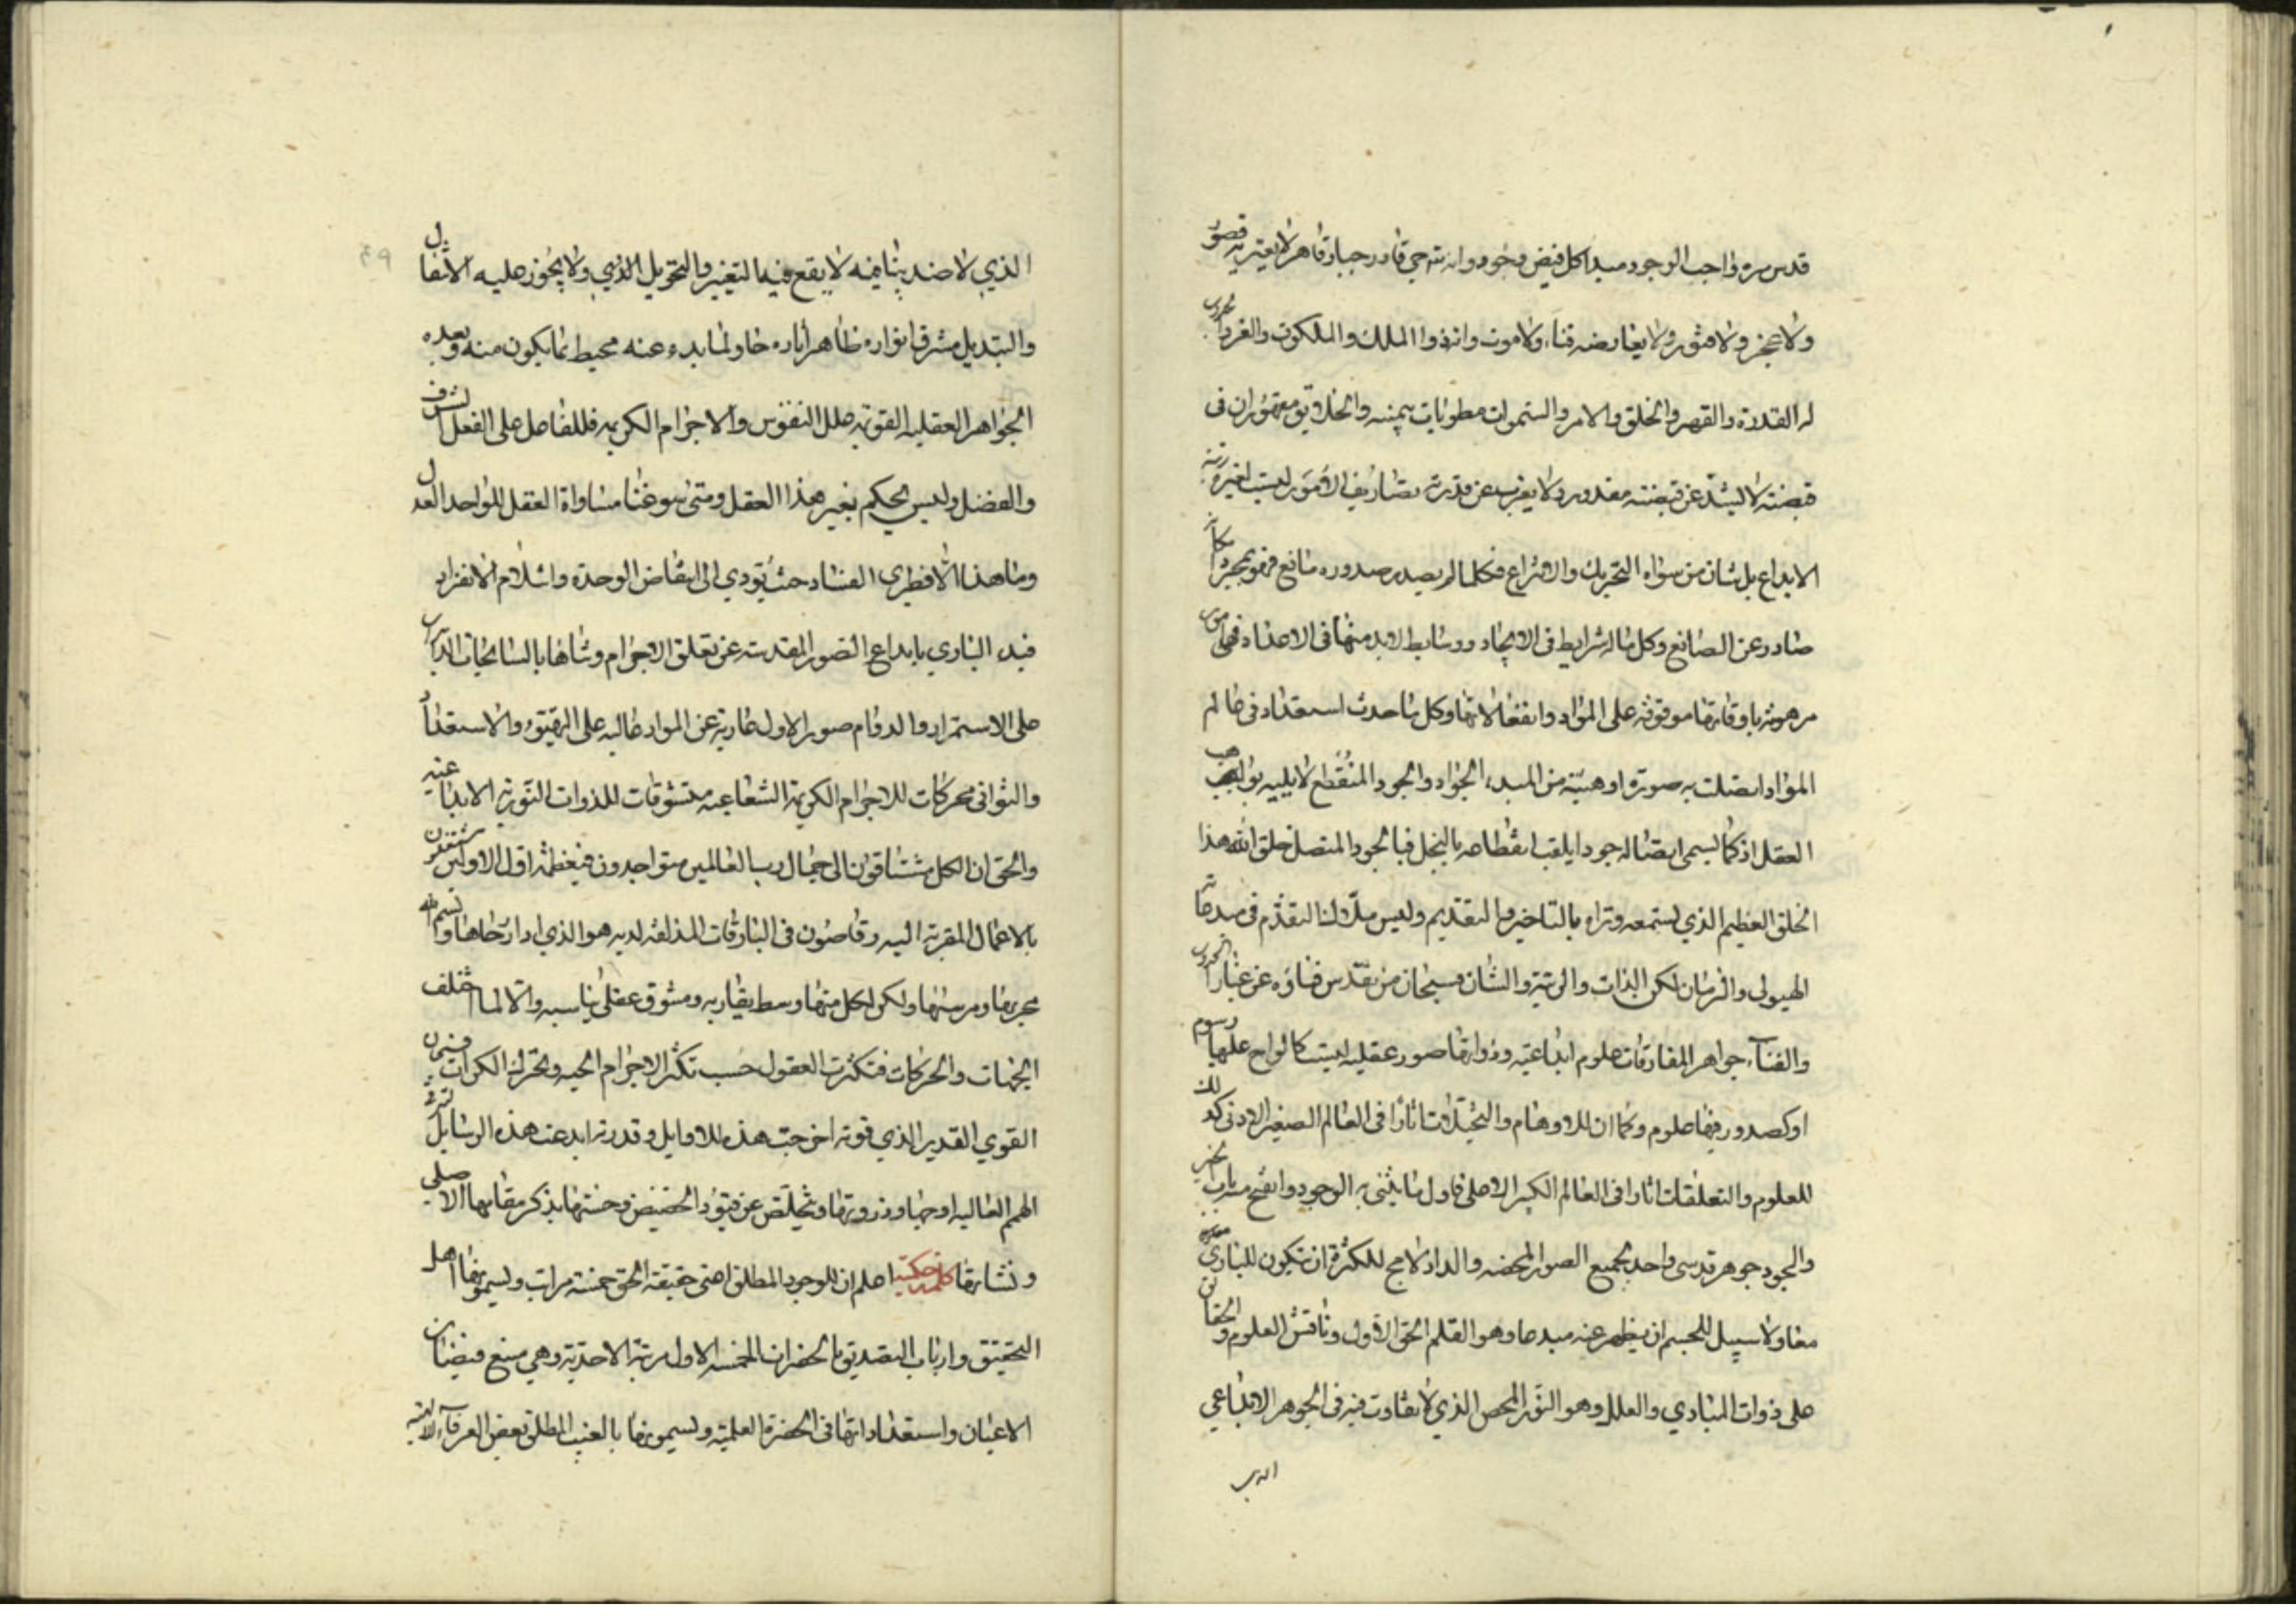 قدس سره واجب الوجود مبدا كل فيض وجود وانه حي قادر جبار قاهر لا يعتريه قصور
ولا عجز ولا فتور ولا يعارضه فناء ولا موت وانه ذو الملك والملكوت والعز والجبروت
له القدرة والقهر والخلق والامر والسموات مطويات بيمينه والخلايق مقهوران في
قبضته لا يشذ عن قبضته مقدور ولا يغرب عن قدرته تصاريف الامور ليست لغيره رتبة
الابداع بل شان من سواه التحريك والاختراع فكلما لم يصدر صدوره مانع فهو بمجرد امكانه
صادر عن الصانع وكل ما له شرايط في الايجاد ووسايط لابد منها في الاعداد فهي امور
مرهونة باوقاتها موقوفة على المواد وانفعالاتها وكل ما حدث استعداد في عالم
المواد اتصلت به صورة او هيئة من المبدء الجواد والجود المنقطع لا يليق بواهب
العقل اذ كما يسمى اتصاله جودا يلقب انقطاعه بالبخل فبالجود المتصل خلق الله هذا
الخلق العظيم الذي تسمعه وتراه بالتاخير والتقديم وليس التقدم في مبدعاته
الهيولى والزمان لكن بالذات والرتبة والشان فسبحان من تقدس فناؤه عن غبار الحدوث
والفناء جواهر المفارقات علوم ابداعية وذواتها صور عقلية ليست كالواح عليها رسوم
او كصدور فيها علوم وكما ان للاوهام والتخيلات اثارا في العالم الصغير الادنى كذلك
للعلوم والتعلقات اثارا في العالم الكبير الاعلى فاول ما يثنى به الوجود وانفتح منه باب الخير
والجود جوهر قدسي واحد بجميع الصور المحضه والدار لا مج للكثرة ان يكون للباري
معا ولا سبيل للجسم ان يظهر عنه مبدعا وهو القلم الحق الاول وناقش العلوم والحقائق
على ذوات المبادي والعلل وهو النور المحض الذي لا تفاوت فيه في الجوهر الابداعي
الذي
الذي لا ضد ينافيه لا يقع فيه التغير والتحويل الذي ولا يجوز عليه الانتقال
والتبديل مشرق انواره ظاهر آثاره حاو لما بدء عنه محيط بما يكون منه وبعده
الجواهر العقليه القوته علل النفوس والاجرام الكريمه فللفاعل على الفعل الشرف
والفضل وليس يحكم بغير هذا العقل ومتى سوغنا مساواة العقل للواحد العدل
وما هذا الا فطرى الفساد حيث يؤدي الى انتقاض الوحدة وانثلام الانفراد
فبدء الباري بابداع الصور المقدسه عن تعلق الاجرام وشانها بالسانحات الدائرات
على الاستمرار والدوام صور الاول عارية عن المواد عالية على القوة والاستعداد
والثواني محركات للاجرام الكريمة الشعاعية متشوقات للذوات النورية الابداعية
والحق ان الكل مشتاقون الى جمال رب العالمين متواجدون في عظمة اول الاولين متقربون
بالاعمال المقربة اليه رقاصون في البارقات المذلفة لديه هو الذي ادار رحاها وبسم الله
مجريها ومرسيها ولكن لكل منها وسط يقاربه ومشوق عقلي يناسبه والا لما اختلف
الجهات والحركات فتكثرت العقول حسب تكثر الاجرام الحيه وتحرك الكرات فسبحان
القوي القدير الذي قوته اخرجت هذه الاوايل وقدرته ابدعت هذه الرسايل لترقى
الهمم العالية اوجها وذروتها وتخلص عن قيود الحضيض وخستها بذكر مقامها الاصلي
ونشاتها كلمة حكمية اعلم ان للوجود المطلق اعني حقيقة الحق خمسة مراتب ويسمونها اهل
التحقيق وارباب التصديق بالحضرات الخمسة الاول مرتبة الاحدية وهي منبع فيضان
الاعيان واستعداداتها في الحضرة العلمية ويسمونها بالغيب المطلق بعض العرفاء